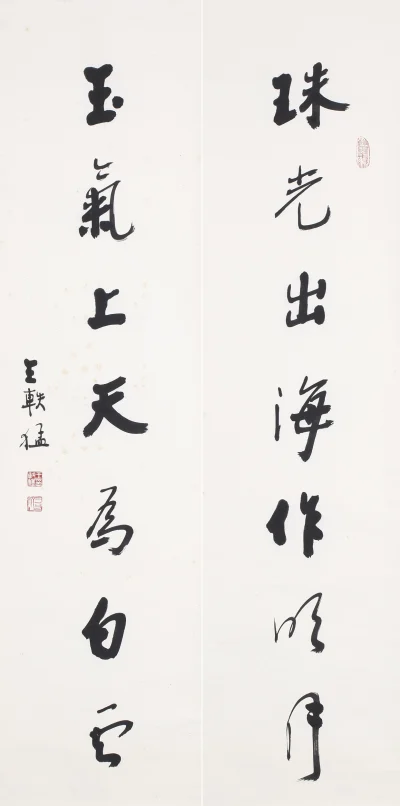 珠光出海作明月
玉氣上天為白雲
王軼猛